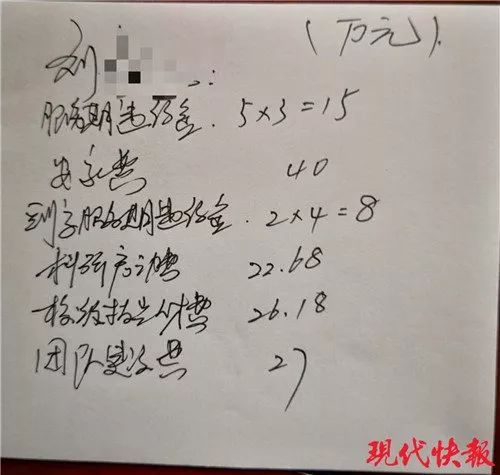 (万元).
刘
服务期违约金. 5×3=15
安家费 40
到字服务期违约金. 2×4=8
科研启动费 22.68
校级指兰人才费 26.18
团队建设费 27
現代快報